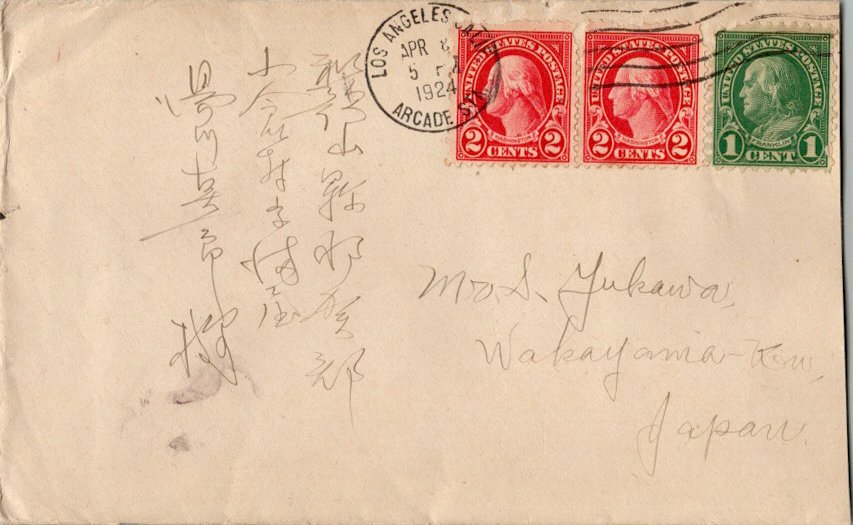 LOS ANGELES CAL.
APR
5 PM
1924
ARCADE STA.
UNITED STATES POSTAGE
WASHINGTON
2 CENTS 2
UNITED STATES POSTAGE
WASHINGTON
2 CENTS 2
UNITED STATES POSTAGE
FRANKLIN
1 CENT 1
山縣那賀郡
小倉村字
湯川
様
Yukawa,
Wakayama-Ken,
Japan.